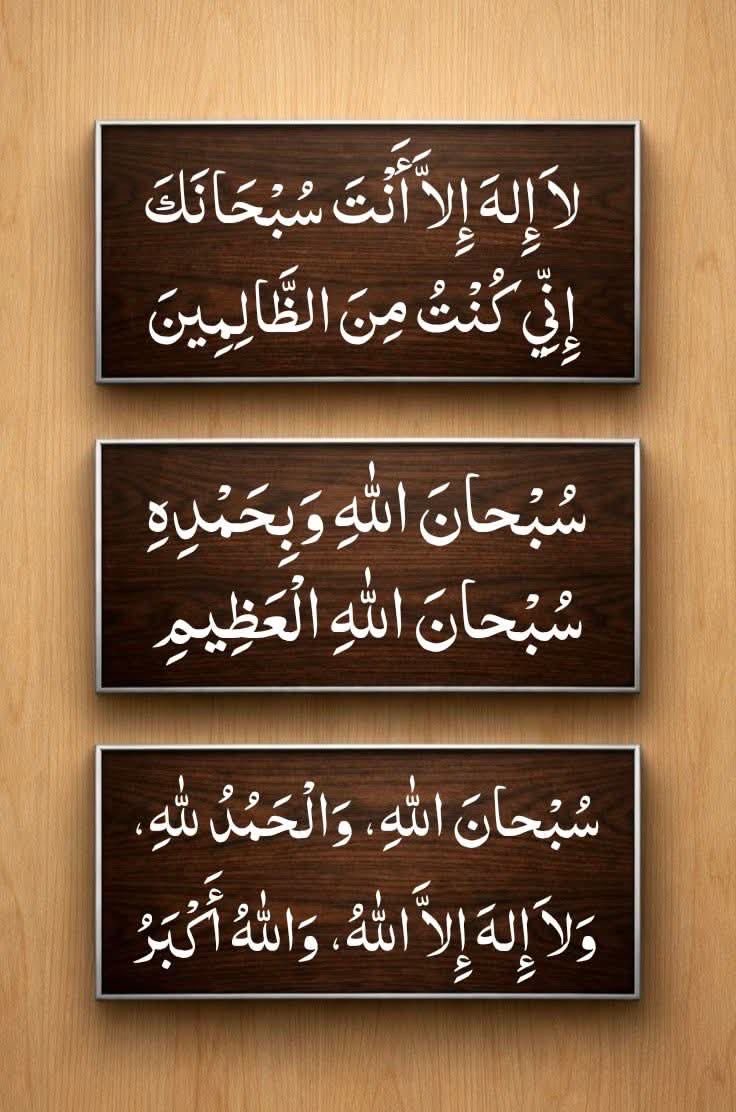 لاَ إِلهَ إِلاَّ أَنْتَ سُبْحَانَكَ
إِنِّي كُنْتُ مِنَ الظَّالِمِينَ
سُبْحانَ اللهِ وَبِحَمْدِهِ
سُبْحانَ اللهِ الْعَظِيمِ
سُبْحانَ اللهِ، وَالْحَمُدُ للهِ،
وَلاَ إِلهَ إِلاَّ اللهُ، وَاللهُ أَكْبَرُ